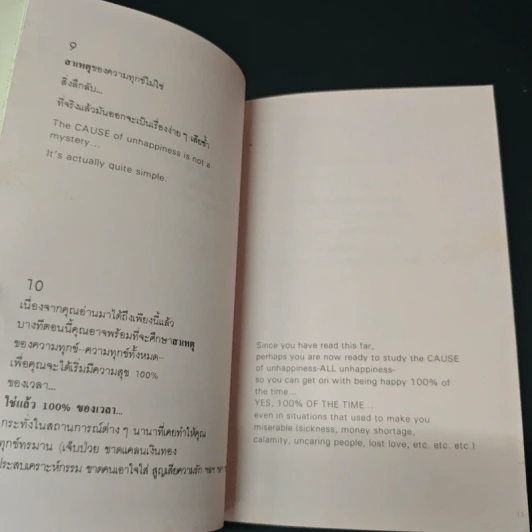 9
สาเหตุของความทุกข์ไม่ใช่
สิ่งลึกลับ...
ที่จริงแล้วมันออกจะเป็นเรื่องง่าย ๆ เสียซ้ำ
The CAUSE of unhappiness is not a
mystery...
It's actually quite simple.
10
เนื่องจากคุณอ่านมาได้ถึงเพียงนี้แล้ว
บางทีตอนนี้คุณอาจพร้อมที่จะศึกษาสาเหตุ
ของความทุกข์--ความทุกข์ทั้งหมด--
เพื่อคุณจะได้เริ่มมีความสุข 100%
ของเวลา...
ใช่แล้ว 100% ของเวลา...
กระทั่งในสถานการณ์ต่าง ๆ นานาที่เคยทำให้คุณ
ทุกข์ทรมาน (เจ็บป่วย ขาดแคลนเงินทอง
ประสบเคราะห์กรรม ขาดคนเอาใจใส่ สูญเสียความรัก ฯลฯ ฯลฯ
Since you have read this far,
perhaps you are now ready to study the CAUSE
of unhappiness-ALL unhappiness-
so you can get on with being happy 100% of
the time...
YES, 100% OF THE TIME...
even in situations that used to make you
miserable (sickness, money shortage,
calamity, uncaring people, lost love, etc. etc. etc.)